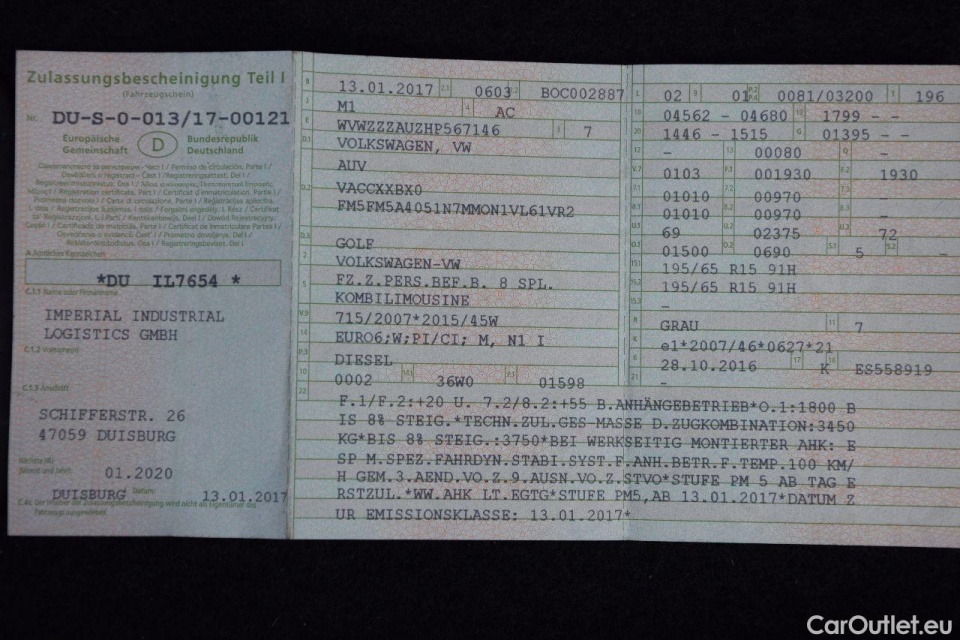 Zulassungsbescheinigung Teil I
(Fahrzeugschein)
Nr. DU-S-0-013/17-00121
Europäische Gemeinschaft D Bundesrepublik Deutschland
A Amtliches Kennzeichen
*DU IL7654 *
C.1.1 Name oder Firmenname
IMPERIAL INDUSTRIAL
LOGISTICS GMBH
C.1.2 Vorname(n)
C.1.3 Anschrift
SCHIFFERSTR. 26
47059 DUISBURG
Nächste HU
01.2020
DUISBURG Datum: 13.01.2017
B 13.01.2017 2.1 0603 2.2 BOC002887
J M1 4 AC
E WVWZZZAUZHP567146 3 7
VOLKSWAGEN, VW
AUV
D.2 VACCXXBX0
FM5FM5A4051N7MMON1VL61VR2
D.3 GOLF
2 VOLKSWAGEN-VW
5 FZ.Z.PERS.BEF.B. 8 SPL.
KOMBILIMOUSINE
V.9 715/2007*2015/45W
14 EURO6;W;PI/CI; M, N1 I
P.3 DIESEL
10 0002 14.1 36W0 P.1 01598
L 02 9 01 P.2 P.4 0081/03200 T 196
18 04562 - 04680 1799 - -
20 1446 - 1515 G 01395 - -
12 - 13 00080 Q -
V.7 0103 001930 1930
7.1 01010 00970
8.1 01010 00970 8.3 -
U.1 69 02375 U.3 72
O.1 01500 O.2 0690 S.1 5 S.2 -
15.1 195/65 R15 91H
15.2 195/65 R15 91H
-
R GRAU 11 7
K e1*2007/46*0627*21
6 28.10.2016 17 K 16 ES558919
21 -
22 F.1/F.2:+20 U. 7.2/8.2:+55 B.ANHÄNGEBETRIEB*O.1:1800 B
IS 8% STEIG.*TECHN.ZUL.GES-MASSE D.ZUGKOMBINATION:3450
KG*BIS 8% STEIG.:3750*BEI WERKSEITIG MONTIERTER AHK: E
SP M.SPEZ.FAHRDYN.STABI.SYST.F.ANH.BETR.F.TEMP.100 KM/
H GEM.3.AEND.VO.Z.9.AUSN.VO.Z.STVO*STUFE PM 5 AB TAG E
RSTZUL.*WW.AHK LT.EGTG*STUFE PM5,AB 13.01.2017*DATUM Z
UR EMISSIONSKLASSE: 13.01.2017*
CarOutlet.eu